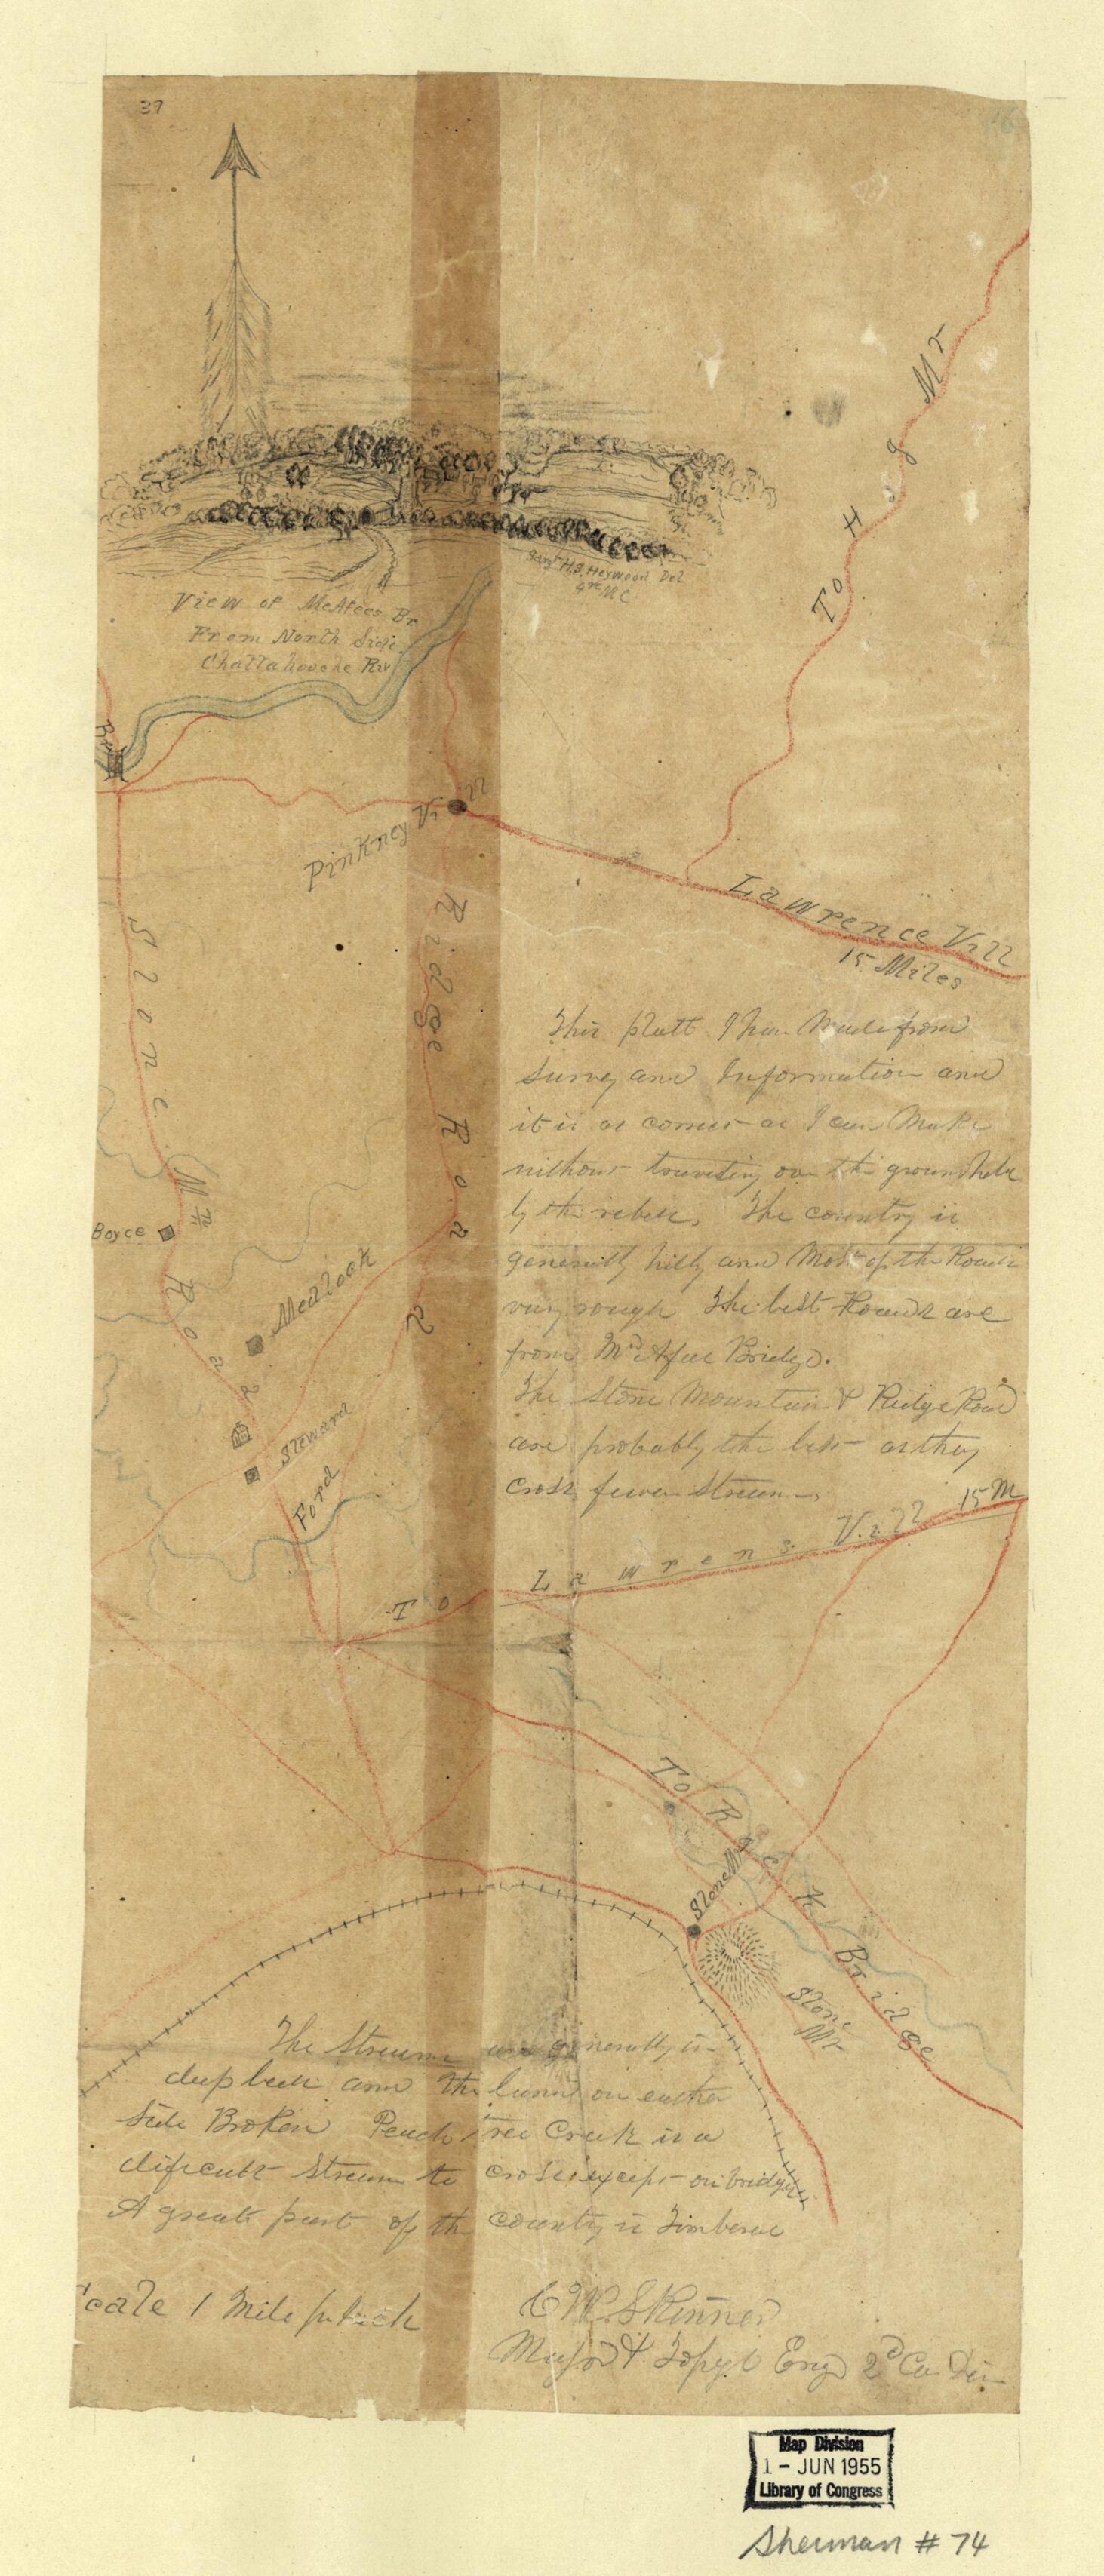 37
To H g Mr
Sargt H.S. Heywood Del
4th MC
View of McAfees Br
From North Side
Chattahooche Riv
Br
Pinkney Vill
Lawrence Vill
15 Miles
Ridge Road
Stone Mt Road
This platt I have Made from
Survey and Information and
it is as correct as I can Make
without traveling over the ground held
by the rebels. The country is
generally hilly and Most of the Roads
very rough The best Roads are
from McAfee Bridge.
The Stone Mountain & Ridge Road
are probably the best as they
cross fewer Streams
Boyce
Medlock
Steward
Ford
To Lawrens Vill 15 M
To Rock Bridge
Stone Mt
Stone
Mt
The Streams are generally in
deep beds and the land on either
side Broken Peach tree Creek is a
dificult Stream to cross except on bridges
A great part of the county is Timbered
cale 1 Mile pr Inch
C W Skinner
Major & Topgl Eng 2d Ca Div
Map Division
1 - JUN 1955
Library of Congress
Sherman # 74